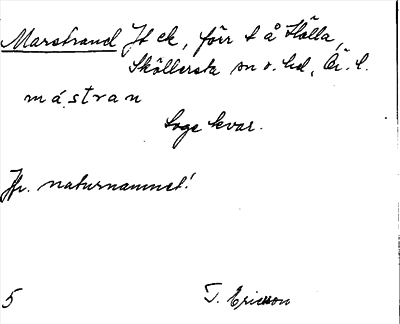 Marstrand Jt ek, förr t å Hölla,
Sköllersta sn o. hd, Ör. l.
mástran
Soge kvar.
Jfr. naturnamnet!
5 T. Ericsson